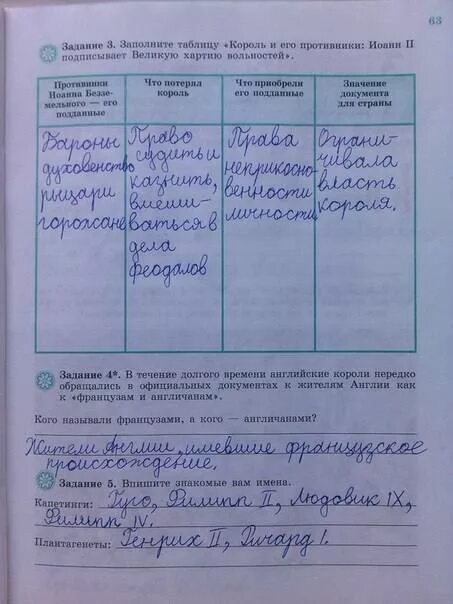 63
Задание 3. Заполните таблицу «Король и его противники: Иоанн II
подписывает Великую хартию вольностей».
Противники
Иоанна Беззе-
мельного — его
подданные
Что потерял
король
Что приобрели
его подданные
Значение
документа
для страны
Бароны
духовенство
рыцари
горожане
Право
судить и
казнить,
вмеши-
ваться в
дела
феодалов
Права
неприкосно-
венности
личности
Ограни-
чивала
власть
короля.
Задание 4*. В течение долгого времени английские короли нередко
обращались в официальных документах к жителям Англии как
к «французам и англичанам».
Кого называли французами, а кого — англичанами?
Жители Англии, имевшие французское
происхождение.
Задание 5. Впишите знакомые вам имена.
Капетинги: Гуго, Филипп II, Людовик IX,
Филипп IV.
Плантагенеты: Генрих II, Ричард I.